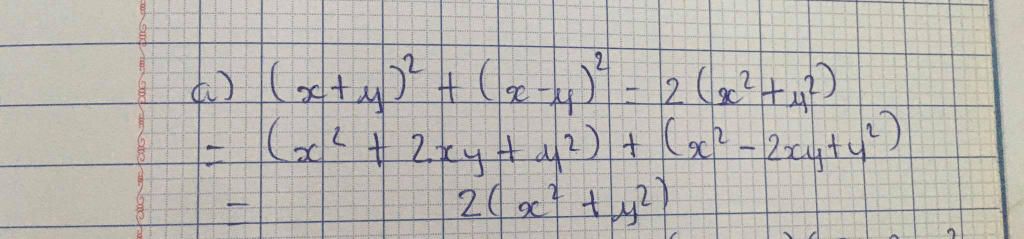 a) (x+y)² + (x-y)² - 2(x²+y²)
= (x² + 2xy + y²) + (x² - 2xy + y²)
- 2(x² + y²)